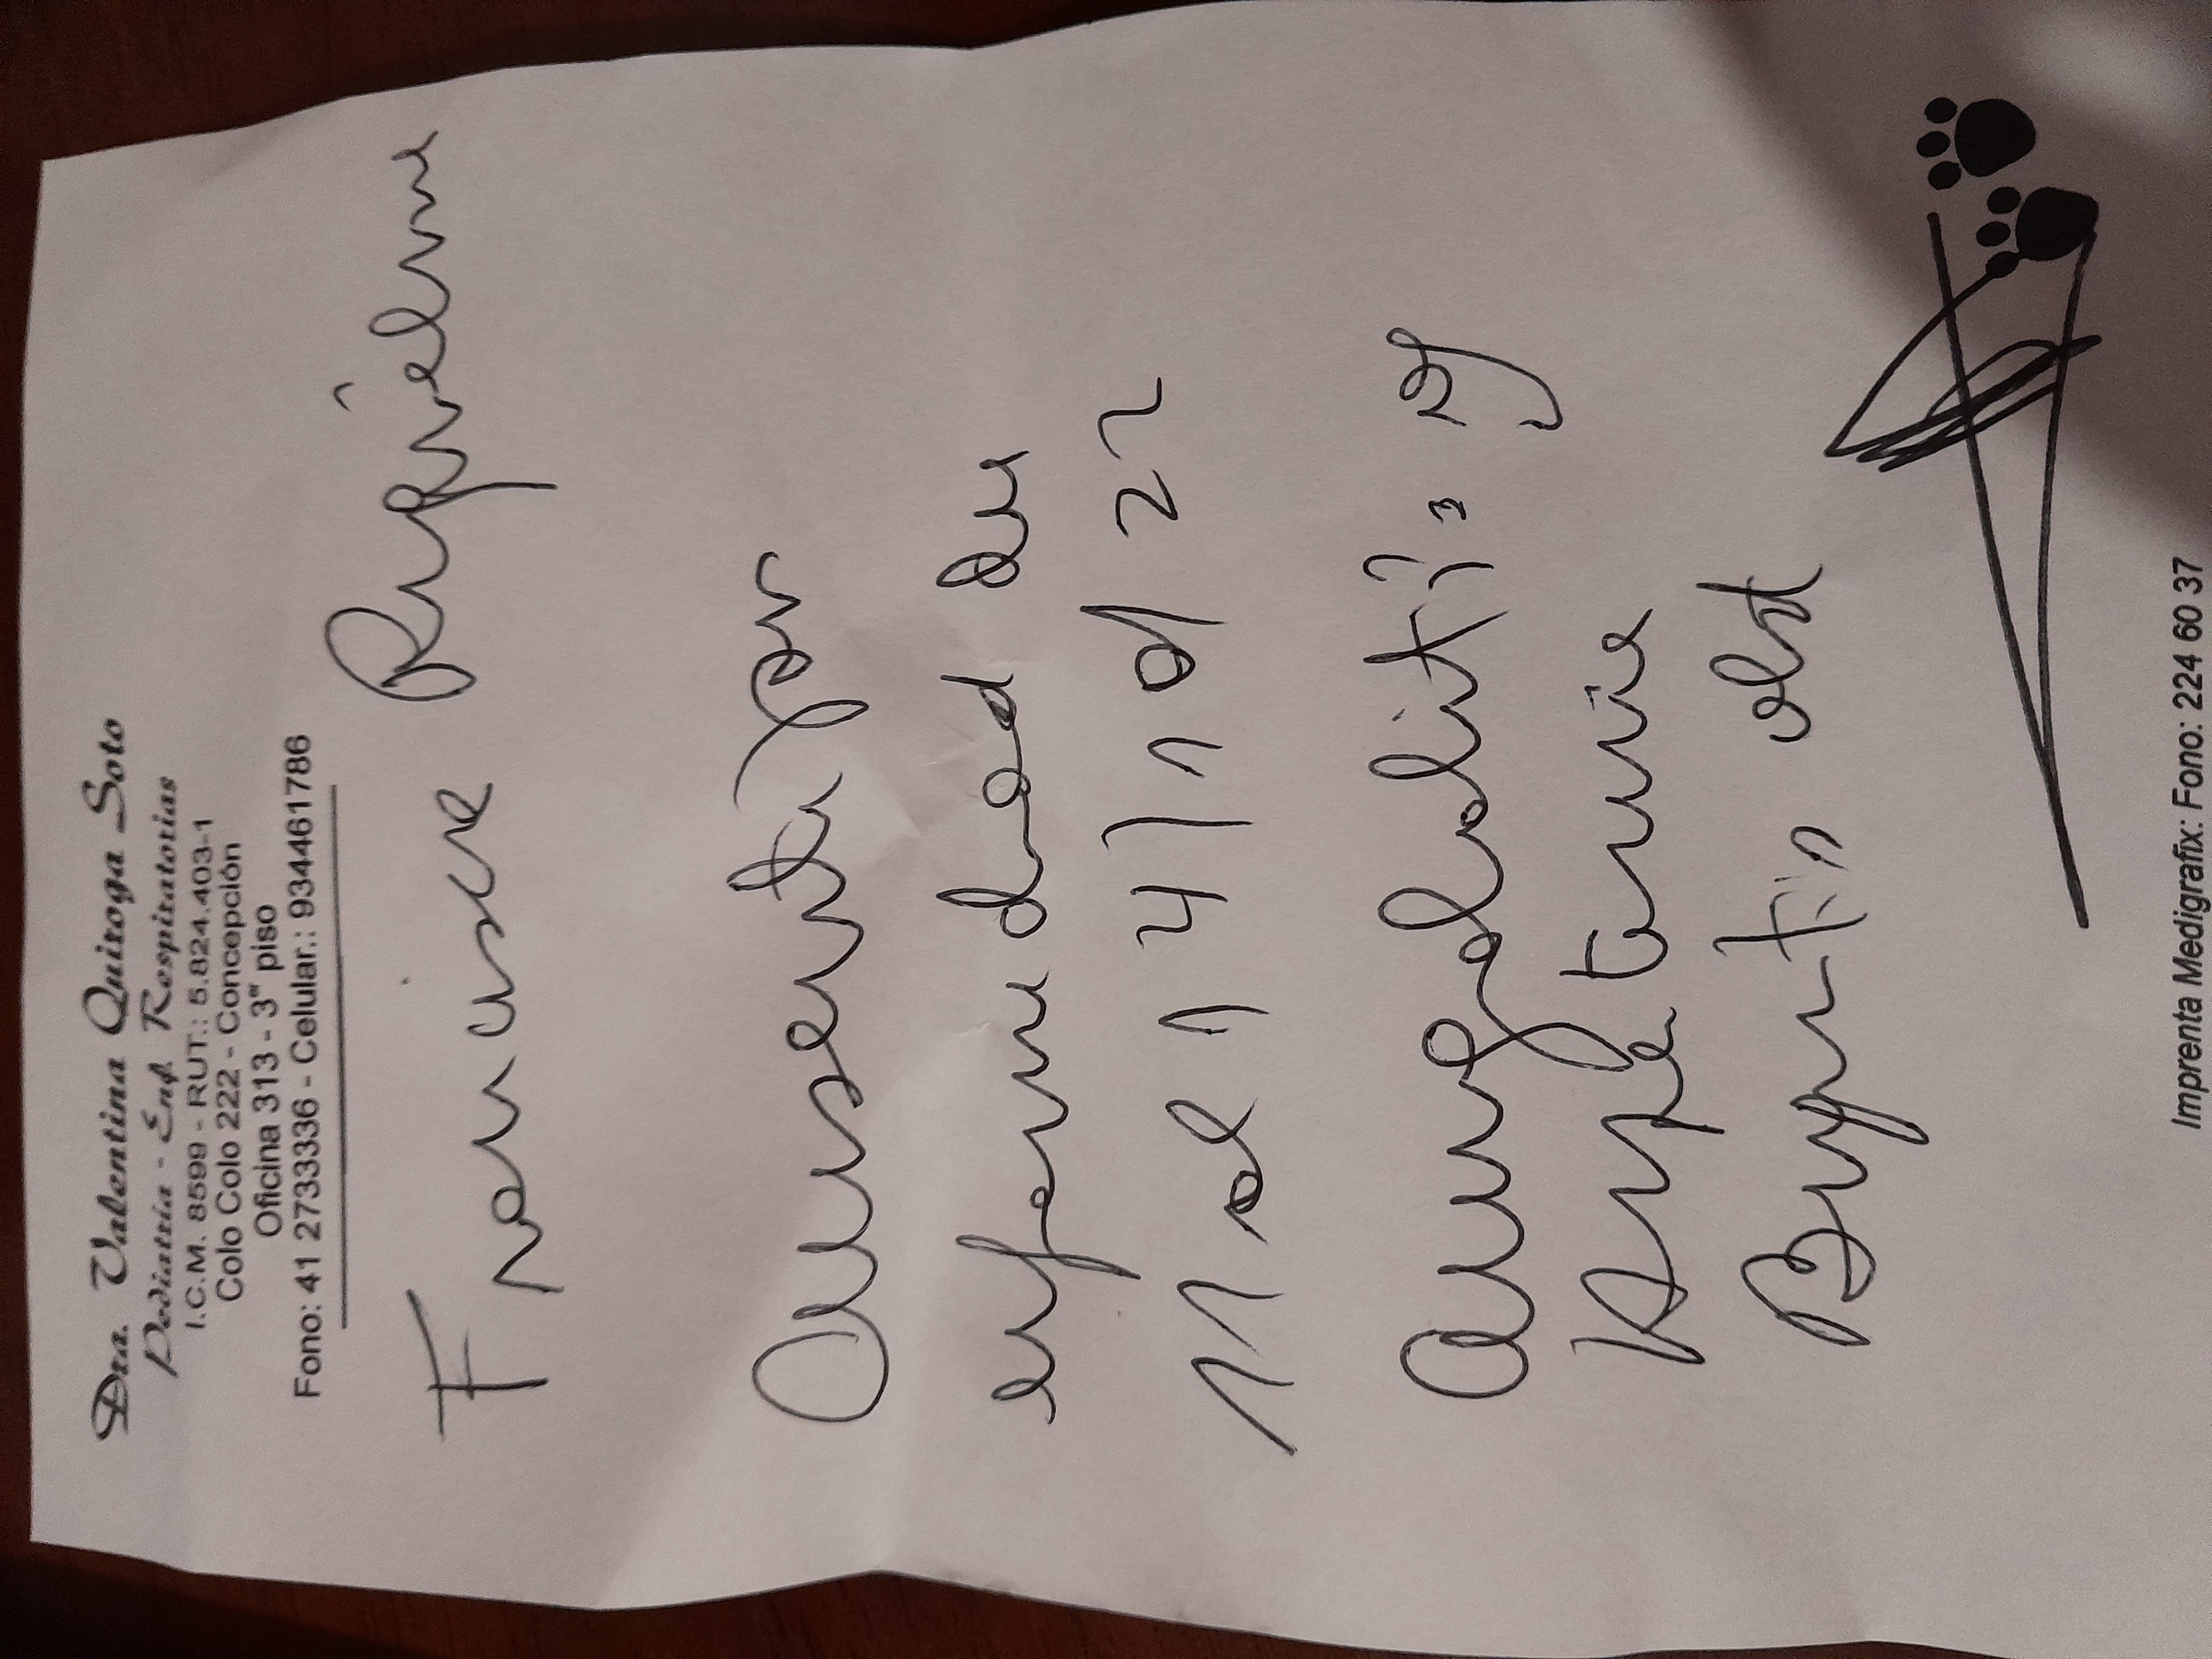 Dra. Valentina Quiroga Soto
Pediatría - Enf. Respiratorias
I.C.M. 8599 - RUT.: 5.824.403-1
Colo Colo 222 - Concepción
Oficina 313 - 3er piso
Fono: 41 2733336 - Celular.: 934461786
Francisca Riquelme
Ausente por
enfermedad del
11 al 14/10/22
Amigdalitis y
Bronquitis obst
Imprenta Medigrafix: Fono: 224 60 37